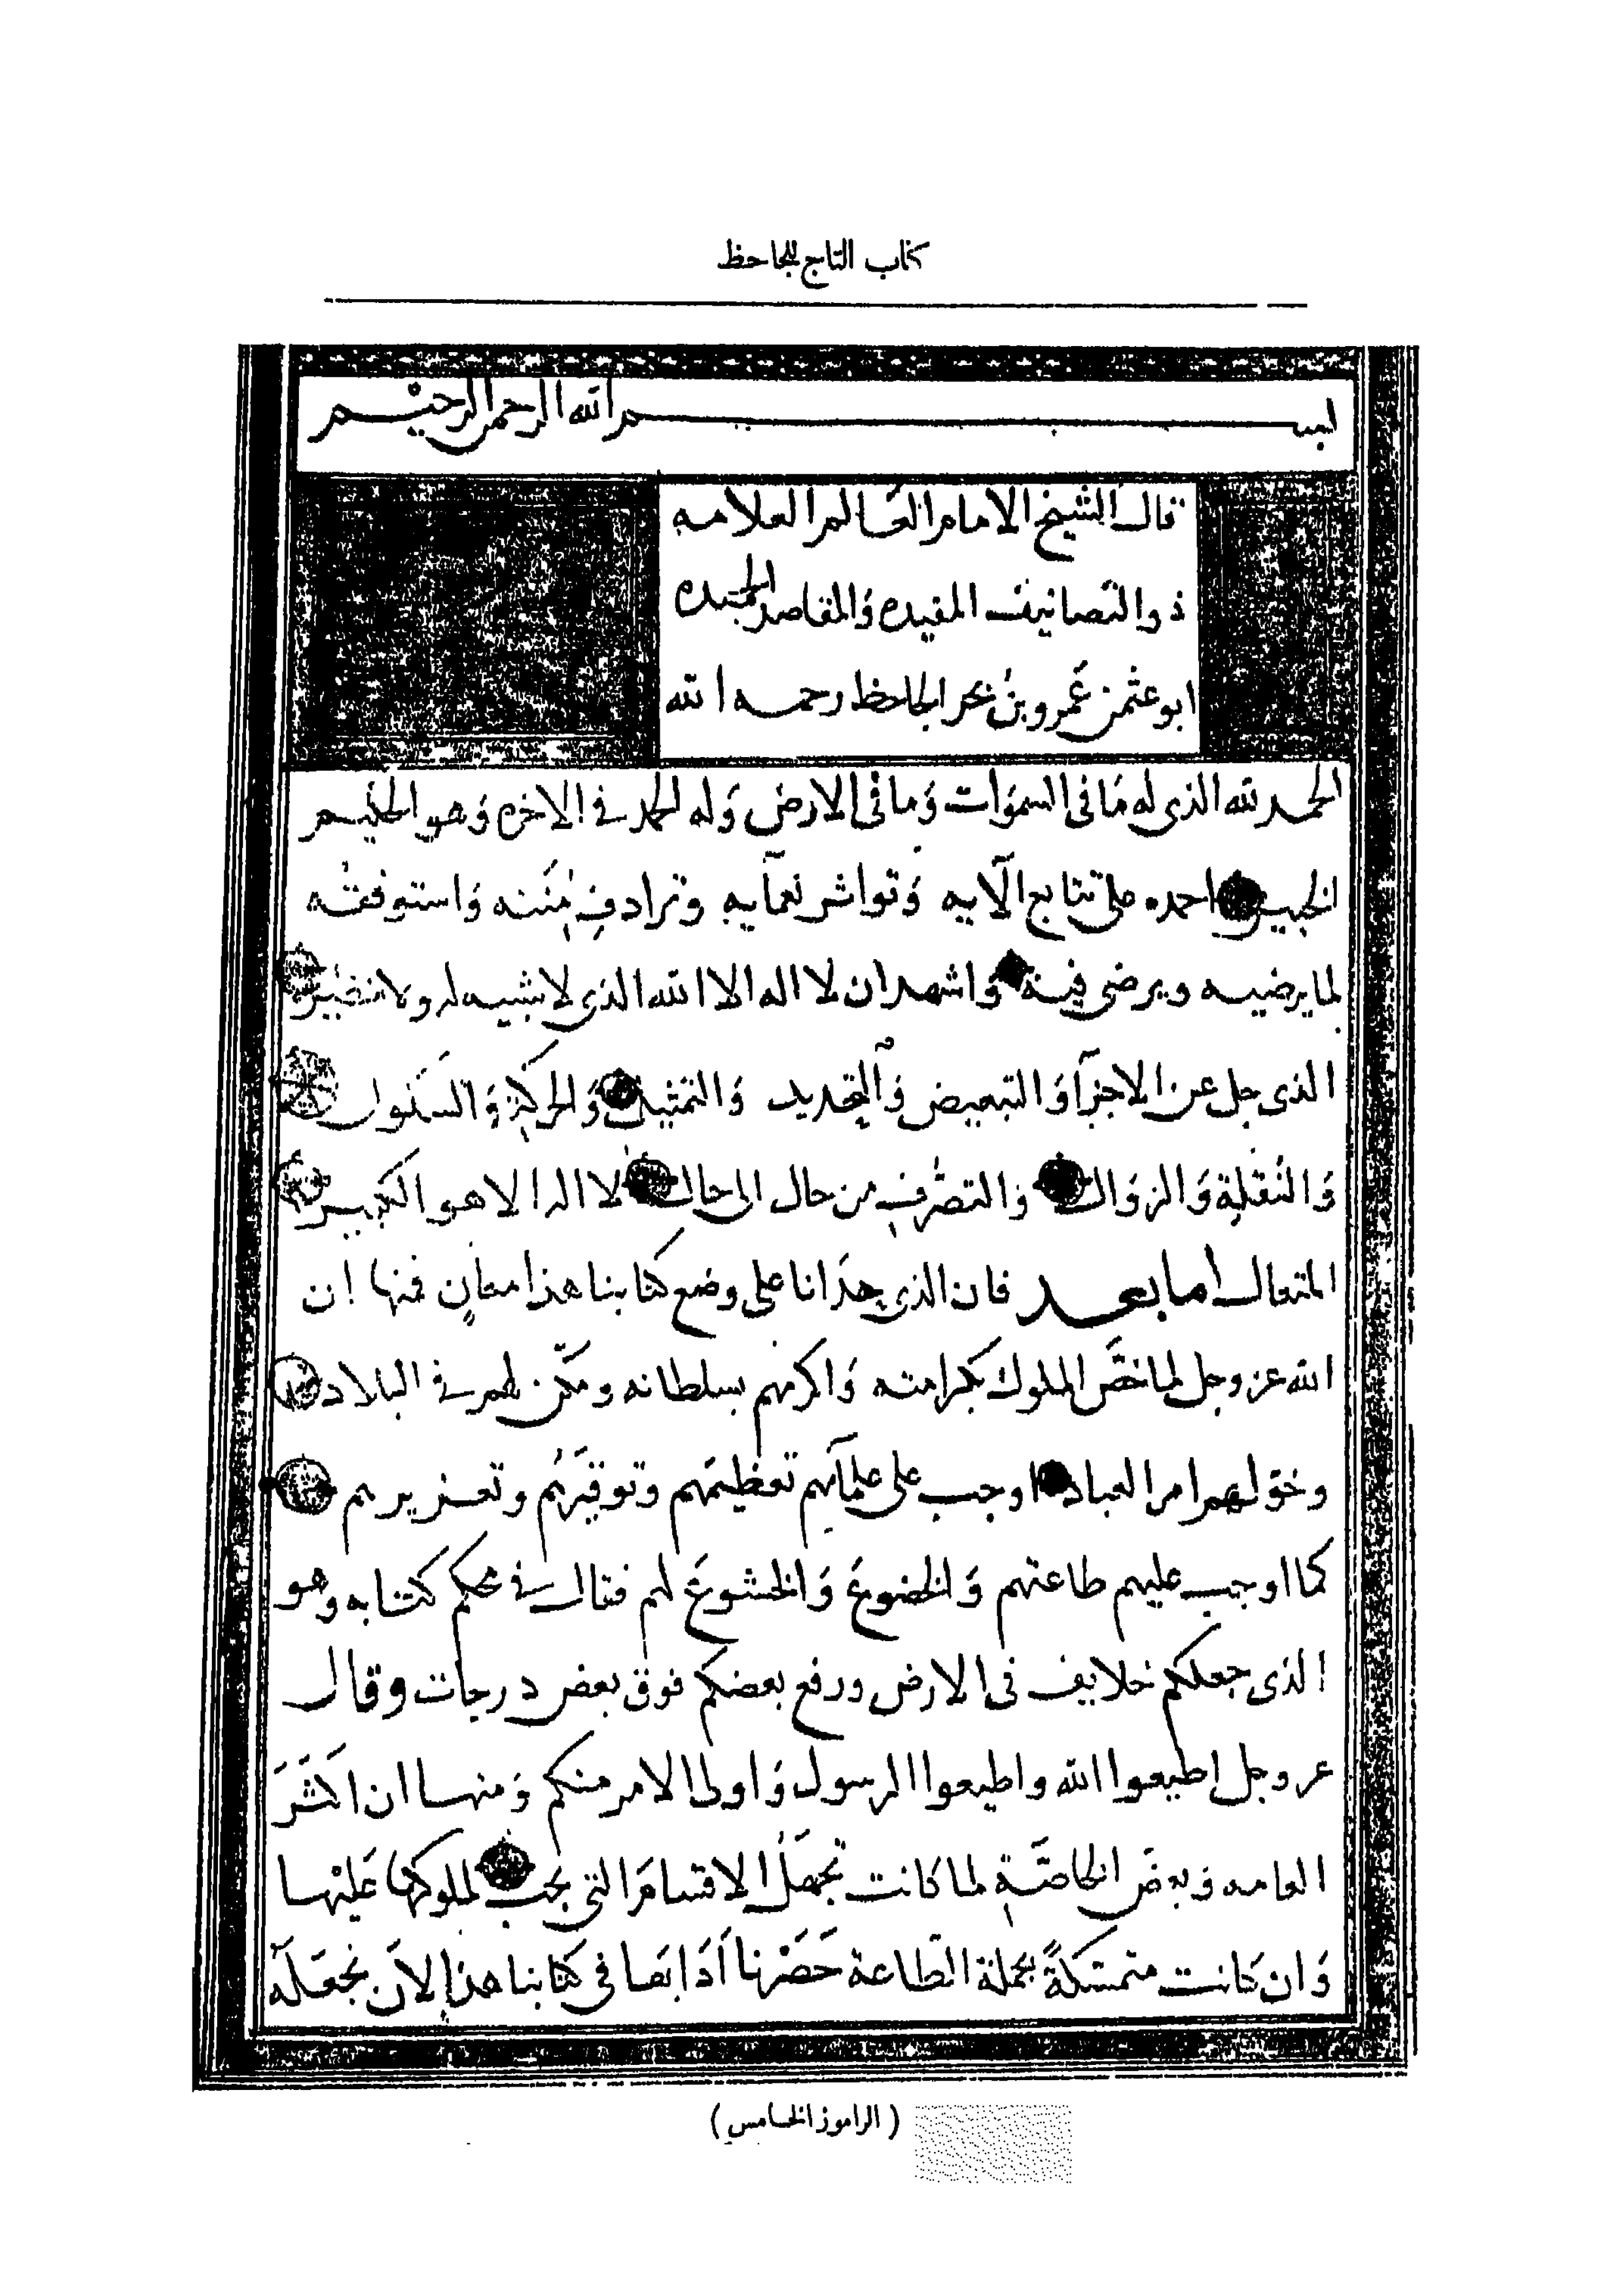 كتاب التاج للجاحظ
بسم الله الرحمن الرحيم
قال الشيخ الامام العالم العلامه
ذو التصانيف المفيده والمقاصد الحميده
ابو عثمن عمرو بن بحر الجاحظ رحمه الله
الحمد لله الذى له ما فى السموات وما فى الارض وله الحمد فى الاخره وهو الحكيم
الخبير احمده على تتابع الآيه وتواتر نعمآيه وترادف مننه واستوفقه
لما يرضيه ويرضى فيه واشهد ان لا اله الا الله الذى لا شبيه له ولا نظير
الذى جل عن الاجزآ والتبعيض والتحديد والتمثيل والحركة والسكون
والنقلة والزوال والتصرف من حال الى حال لا اله الا هو الكبير
المتعال اما بعد فان الذى حدانا على وضع كتابنا هذا معانٍ فمنها ان
الله عز وجل لما خصّ الملوك بكرامته واكرمهم بسلطانه ومكّن لهم فى البلاد
وخوّلهم امر العباد اوجب على علمآئهم تعظيمهم وتوقيرهم وتعزيرهم
كما اوجب عليهم طاعتهم والخضوع والخشوع لهم فقال فى محكم كتابه وهو
الذى جعلكم خلايف فى الارض ورفع بعضكم فوق بعض درجات وقال
عز وجل اطيعوا الله واطيعوا الرسول واولى الامر منكم ومنها ان اكثر
العامه وبعض الخاصّة لما كانت تجهل الاقسام التى تجب لملوكها عليها
وان كانت متمسّكةً بجملة الطاعة حَصَرْنا آدابها فى كتابنا هذا لأن نجعله
(الراموز الخامس)